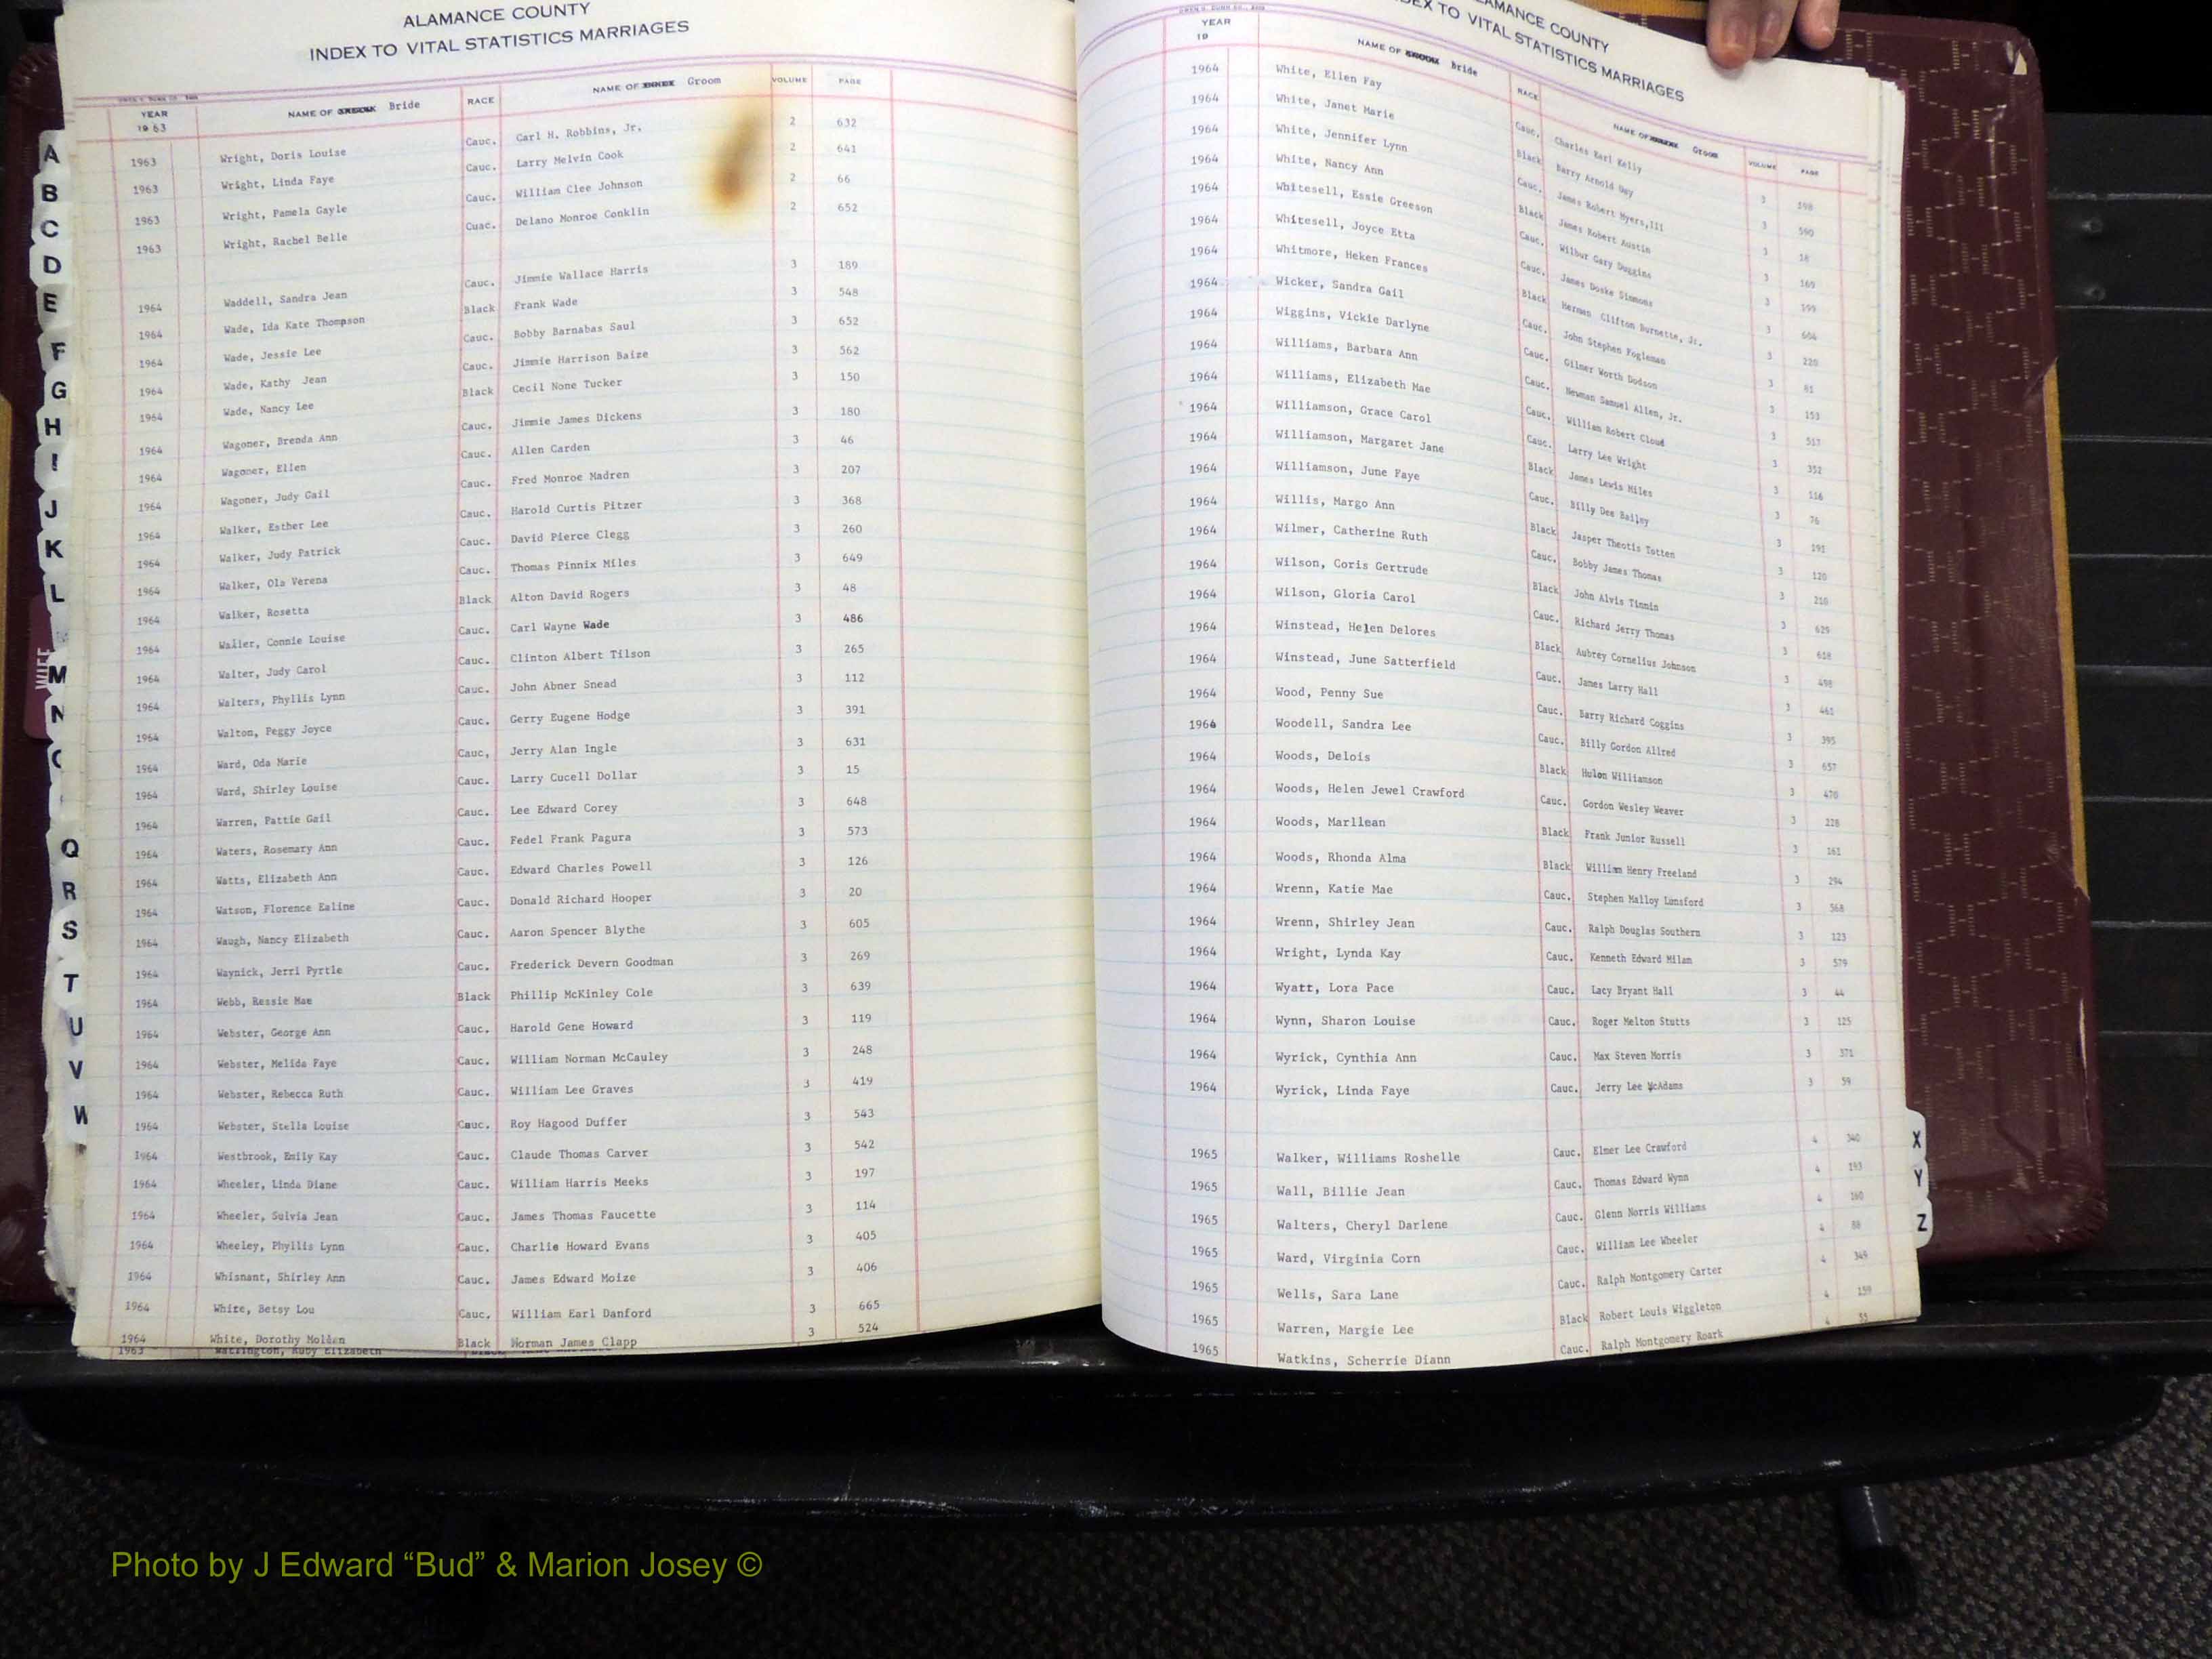 ALAMANCE COUNTY
INDEX TO VITAL STATISTICS MARRIAGES
YEAR NAME OF Bride RACE NAME OF Groom VOLUME PAGE
1963
1963 Wright, Doris Louise Cauc. Carl H. Robbins, Jr. 2 632
1963 Wright, Linda Faye Cauc. Larry Melvin Cook 2 641
1963 Wright, Pamela Gayle Cauc. William Clee Johnson 2 66
1963 Wright, Rachel Belle Cuac. Delano Monroe Conklin 2 652
1964 Waddell, Sandra Jean Cauc. Jimmie Wallace Harris 3 189
1964 Wade, Ida Kate Thompson Black Frank Wade 3 548
1964 Wade, Jessie Lee Cauc. Bobby Barnabas Saul 3 652
1964 Wade, Kathy Jean Cauc. Jimmie Harrison Baize 3 562
1964 Wade, Nancy Lee Black Cecil None Tucker 3 150
1964 Wagoner, Brenda Ann Cauc. Jimmie James Dickens 3 180
1964 Wagoner, Ellen Cauc. Allen Carden 3 46
1964 Wagoner, Judy Gail Cauc. Fred Monroe Madren 3 207
1964 Walker, Esther Lee Cauc. Harold Curtis Pitzer 3 368
1964 Walker, Judy Patrick Cauc. David Pierce Clegg 3 260
1964 Walker, Ola Verena Cauc. Thomas Pinnix Miles 3 649
1964 Walker, Rosetta Black Alton David Rogers 3 48
1964 Waller, Connie Louise Cauc. Carl Wayne Wade 3 486
1964 Walter, Judy Carol Cauc. Clinton Albert Tilson 3 265
1964 Walters, Phyllis Lynn Cauc. John Abner Snead 3 112
1964 Walton, Peggy Joyce Cauc. Gerry Eugene Hodge 3 391
1964 Ward, Oda Marie Cauc, Jerry Alan Ingle 3 631
1964 Ward, Shirley Louise Cauc. Larry Cucell Dollar 3 15
1964 Warren, Pattie Gail Cauc. Lee Edward Corey 3 648
1964 Waters, Rosemary Ann Cauc. Fedel Frank Pagura 3 573
1964 Watts, Elizabeth Ann Cauc. Edward Charles Powell 3 126
1964 Watson, Florence Ealine Cauc. Donald Richard Hooper 3 20
1964 Waugh, Nancy Elizabeth Cauc. Aaron Spencer Blythe 3 605
1964 Waynick, Jerri Pyrtle Cauc. Frederick Devern Goodman 3 269
1964 Webb, Ressie Mae Black Phillip McKinley Cole 3 639
1964 Webster, George Ann Cauc. Harold Gene Howard 3 119
1964 Webster, Melida Faye Cauc. William Norman McCauley 3 248
1964 Webster, Rebecca Ruth Cauc. William Lee Graves 3 419
1964 Webster, Stella Louise Cauc. Roy Hagood Duffer 3 543
1964 Westbrook, Emily Kay Cauc. Claude Thomas Carver 3 542
1964 Wheeler, Linda Diane Cauc. William Harris Meeks 3 197
1964 Wheeler, Sulvia Jean Cauc. James Thomas Faucette 3 114
1964 Wheeley, Phyllis Lynn Cauc. Charlie Howard Evans 3 405
1964 Whisnant, Shirley Ann Cauc. James Edward Moize 3 406
1964 White, Betsy Lou Cauc. William Earl Danford 3 665
1964 White, Dorothy Molden Black Norman James Clapp 3 524
1963 Watlington, Ruby Elizabeth
A
B
C
D
E
F
G
H
I
J
K
L
WIFE
M
N
Q
R
S
T
U
V
W
ALAMANCE COUNTY
INDEX TO VITAL STATISTICS MARRIAGES
YEAR NAME OF Bride RACE NAME OF Groom VOLUME PAGE
19
1964 White, Ellen Fay Cauc. Charles Earl Kelly 3 598
1964 White, Janet Marie Black Barry Arnold 3 590
1964 White, Jennifer Lynn Cauc. James Robert Myers,III 3 18
1964 White, Nancy Ann Black James Robert Austin 3 169
1964 Whitesell, Essie Greeson Cauc. Wilbur Gary Duggins 3 599
1964 Whitesell, Joyce Etta Cauc. James Doske Simmons 3 604
1964 Whitmore, Heken Frances Black Herman Clifton Burnette, Jr. 3 220
1964 Wicker, Sandra Gail Cauc. John Stephen Fogleman 3 81
1964 Wiggins, Vickie Darlyne Cauc. Gilmer Worth Dodson 3 153
1964 Williams, Barbara Ann Cauc. Newman Samuel Allen, Jr. 3 517
1964 Williams, Elizabeth Mae Cauc. William Robert Cloud 3 352
1964 Williamson, Grace Carol Cauc. Larry Lee Wright 3 116
1964 Williamson, Margaret Jane Black James Lewis Miles 3 76
1964 Williamson, June Faye Cauc. Billy Dee Bailey 3 191
1964 Willis, Margo Ann Black Jasper Theotis Totten 3 120
1964 Wilmer, Catherine Ruth Cauc. Bobby James Thomas 3 210
1964 Wilson, Coris Gertrude Black John Alvis Tinnin 3 629
1964 Wilson, Gloria Carol Cauc. Richard Jerry Thomas 3 618
1964 Winstead, Helen Delores Black Aubrey Cornelius Johnson 3 498
1964 Winstead, June Satterfield Cauc. James Larry Hall 3 461
1964 Wood, Penny Sue Cauc. Barry Richard Coggins 3 395
1964 Woodell, Sandra Lee Cauc. Billy Gordon Allred 3 657
1964 Woods, Delois Black Hulon Williamson 3 470
1964 Woods, Helen Jewel Crawford Cauc. Gordon Wesley Weaver 3 228
1964 Woods, Marllean Black Frank Junior Russell 3 161
1964 Woods, Rhonda Alma Black William Henry Freeland 3 294
1964 Wrenn, Katie Mae Cauc. Stephen Malloy Lunsford 3 568
1964 Wrenn, Shirley Jean Cauc. Ralph Douglas Southern 3 123
1964 Wright, Lynda Kay Cauc. Kenneth Edward Milam 3 579
1964 Wyatt, Lora Pace Cauc. Lacy Bryant Hall 3 44
1964 Wynn, Sharon Louise Cauc. Roger Melton Stutts 3 125
1964 Wyrick, Cynthia Ann Cauc. Max Steven Morris 3 371
1964 Wyrick, Linda Faye Cauc. Jerry Lee McAdams 3 59
1965 Walker, Williams Roshelle Cauc. Elmer Lee Crawford 4 340
1965 Wall, Billie Jean Cauc. Thomas Edward Wynn 4 193
1965 Walters, Cheryl Darlene Cauc. Glenn Norris Williams 4 160
1965 Ward, Virginia Corn Cauc. William Lee Wheeler 4 88
1965 Wells, Sara Lane Cauc. Ralph Montgomery Carter 4 349
1965 Warren, Margie Lee Black Robert Louis Wiggleton 4 159
1965 Watkins, Scherrie Diann Cauc. Ralph Montgomery Roark 4 55
X
Y
Z
Photo by J Edward “Bud” & Marion Josey ©